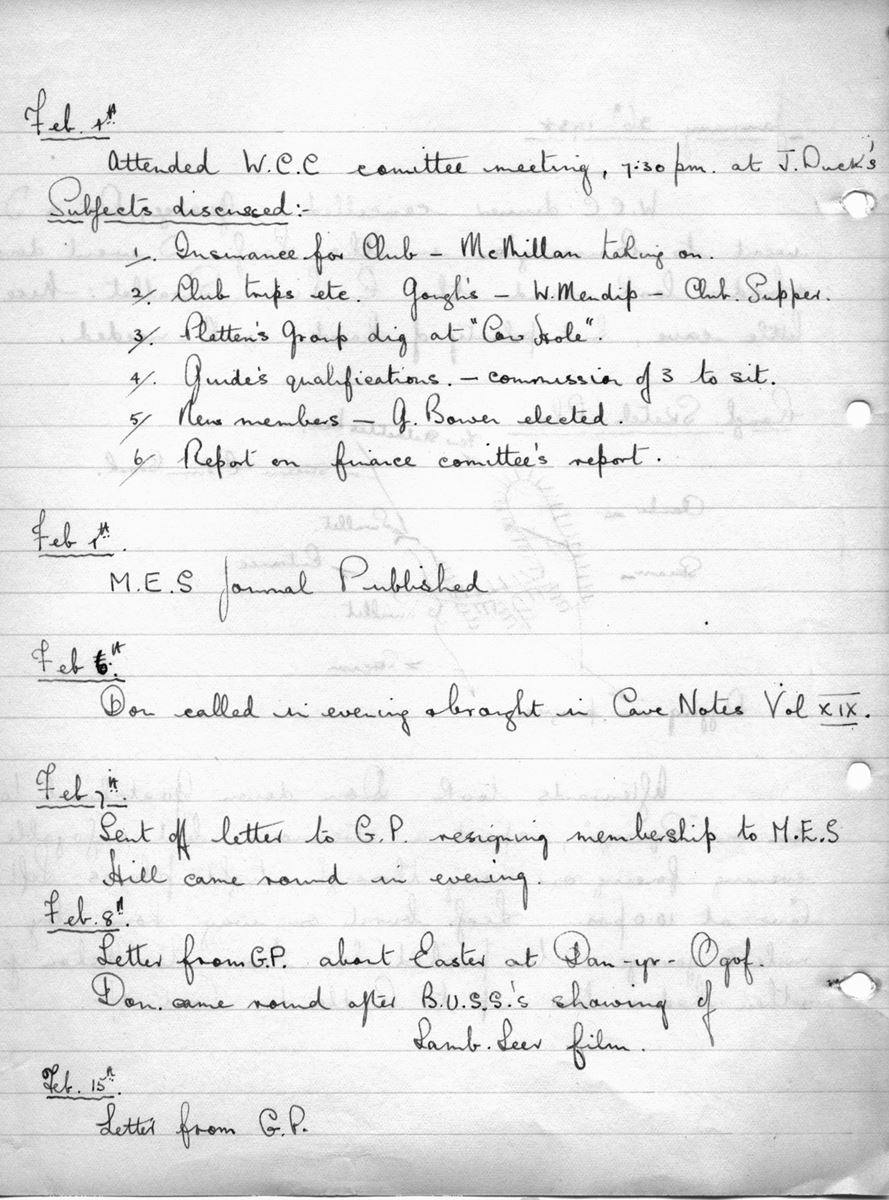 Feb. 4th
Attended W.C.C comittee meeting, 7.30 pm. at J. Duck's
Subjects discussed:-
1/. Insurance for Club - McMillan taking on.
2/. Club trips etc. Gough's - W. Mendip - Club. Supper.
3/. Platten's Group dig at "Cow Hole".
4/. Guide's qualifications. - commission of 3 to sit.
5/ New members - G. Bower elected.
6/. Report on finance comittee's report.
Feb 1st.
M.E.S Journal Published
Feb 6th.
Don called in evening & brought in Cave Notes Vol XIX.
Feb 7th.
Sent off letter to G.P. resigning membership to M.E.S
Hill came round in evening.
Feb. 8th.
Letter from G.P. about Easter at Dan-yr-Ogof.
Don. came round after B.U.S.S.'s showing of
Lamb. Leer film.
Feb. 15th.
Letter from G.P.